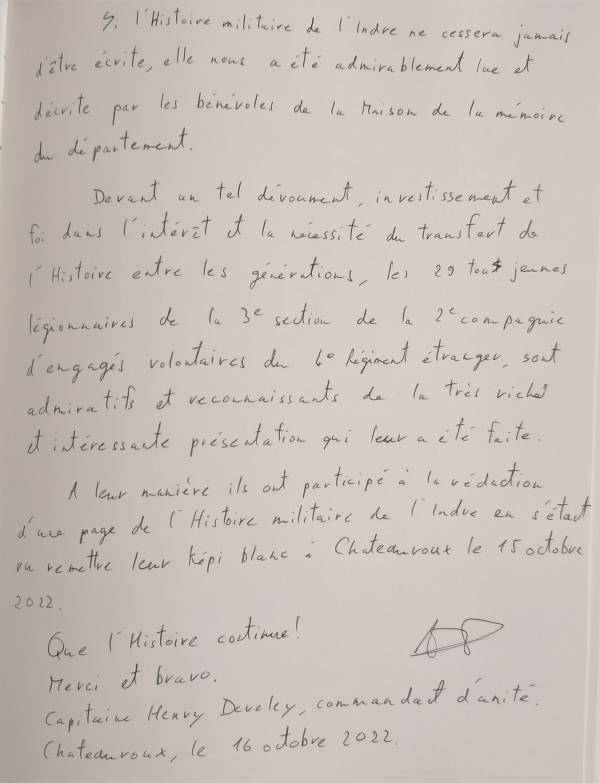 Si l'Histoire militaire de l'Indre ne cessera jamais
d'être écrite, elle nous a été admirablement lue et
décrite par les bénévoles de la Maison de la mémoire
du département.
Devant un tel dévoument, investissement et
foi dans l'intérêt et la nécessité du transfert de
l'Histoire entre les générations, les 29 tous jeunes
légionnaires de la 3e section de la 2e compagnie
d'engagés volontaires du 4e Régiment étranger, sont
admiratifs et reconnaissants de la très riche
et intéressante présentation qui leur a été faite.
A leur manière ils ont participé à la rédaction
d'une page de l'Histoire militaire de l'Indre en s'étant
vu remettre leur képi blanc à Chateauroux le 15 octobre
2022.
Que l'Histoire continue!
Merci et bravo.
Capitaine Henry Develey, commandant d'unité.
Chateauroux, le 16 octobre 2022.